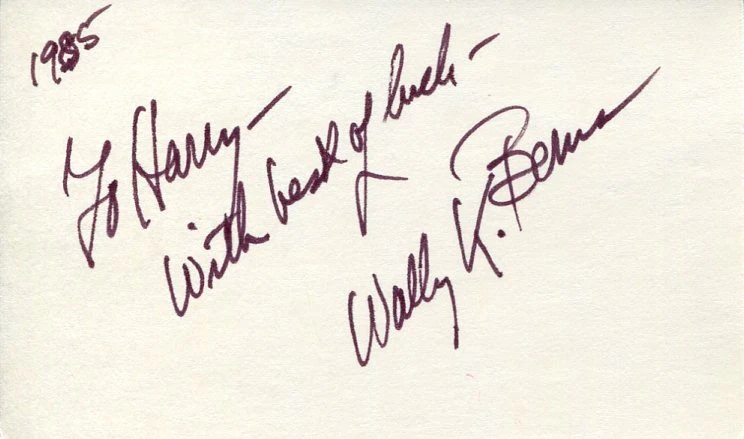 1985
To Harry—
With best of luck—
Wally K. Berns